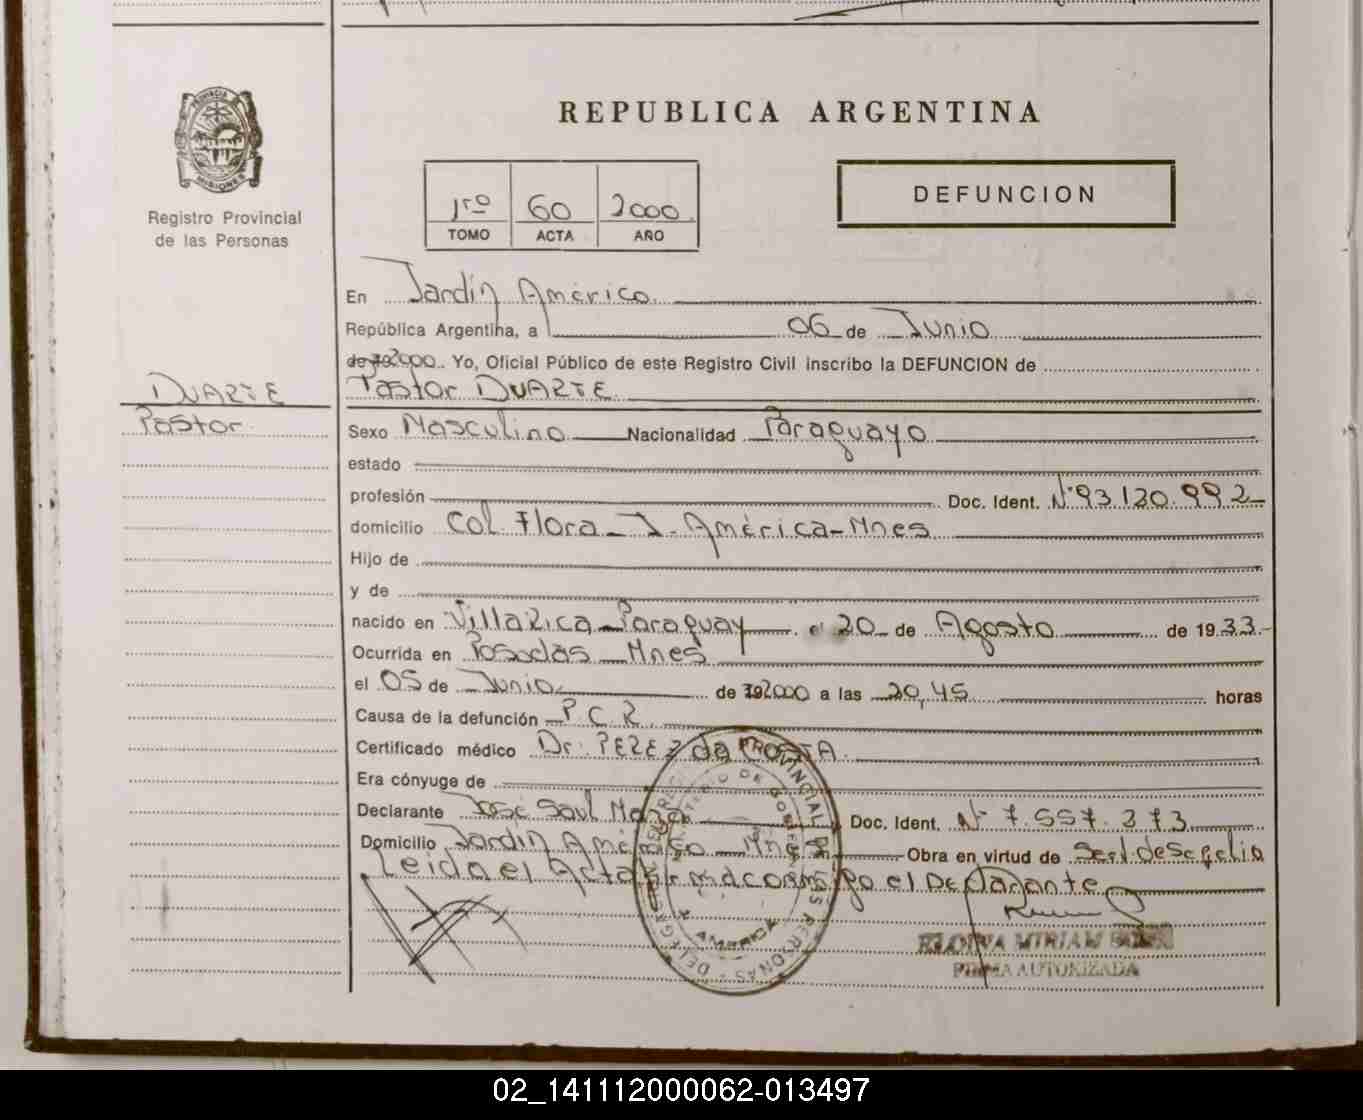 REPUBLICA ARGENTINA
PROVINCIA
MISIONES
Registro Provincial
de las Personas
1ro 60 2000
TOMO ACTA AÑO
DEFUNCION
En Jardín América
República Argentina, a 06 de Junio
de 192000. Yo, Oficial Público de este Registro Civil inscribo la DEFUNCION de
DUARTE
Pastor DUARTE
Pastor
Sexo Masculino Nacionalidad Paraguayo
estado
profesión Doc. Ident. N° 93.130.992
domicilio Col. Flora - J. América - Mnes
Hijo de
y de
nacido en Villa Rica - Paraguay el 20 de Agosto de 1933
Ocurrida en Posadas Mnes
el 05 de Junio de 192000 a las 20,45 horas
Causa de la defunción P.C.R.
Certificado médico Dr. PEREZ da COSTA.
Era cónyuge de
Declarante José Saul Doc. Ident. N° 7.557.373
Domicilio Jardín América Mnes Obra en virtud de
Leída el Acta firma conmigo el Declarante
PROVINCIAL DE LAS PERSONAS
AMERICA
ELOINA MIRIAM
FIRMA AUTORIZADA
02_141112000062-013497